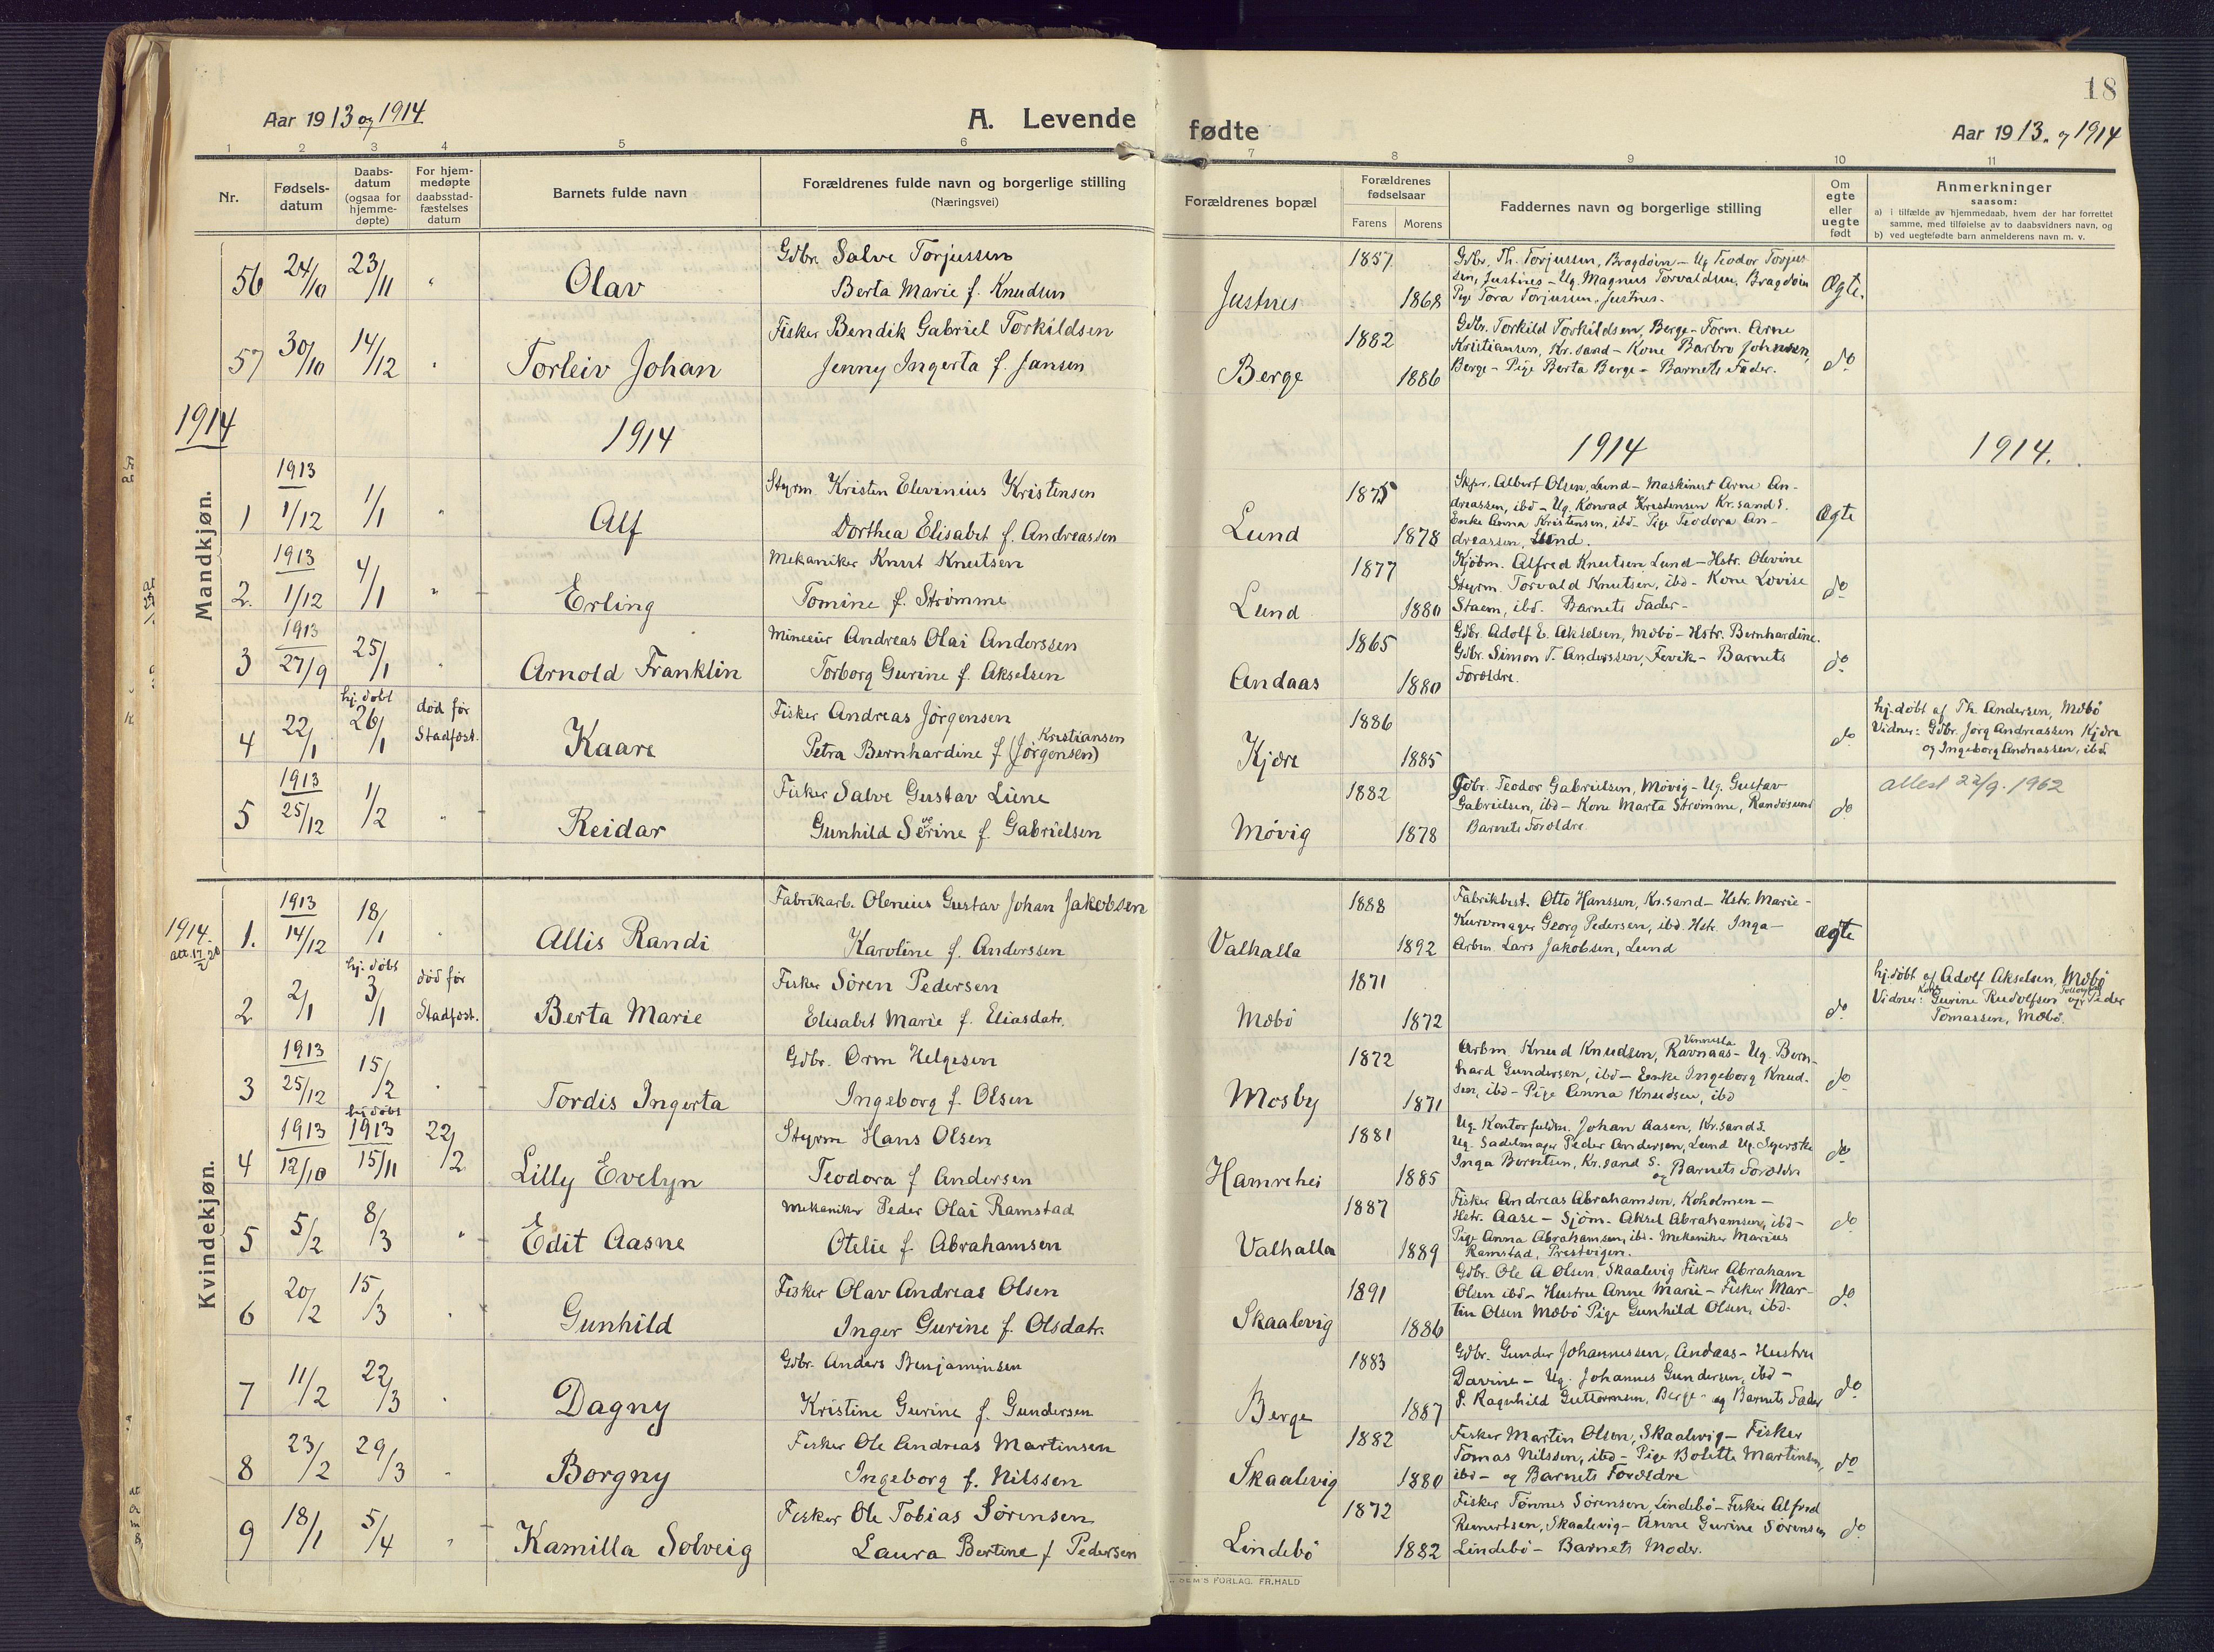 18
Aar 1913 og 1914
A. Levende
fødte
Aar 1913. og 1914
1 2 3 4 5 6 7 8 9 10 11
Nr.
Fødsels-
datum
Daabs-
datum
(ogsaa for
hjemme-
døpte)
For hjem-
medøpte
daabsstad-
fæstelses
datum
Barnets fulde navn
Forældrenes fulde navn og borgerlige stilling
(Næringsvei)
Forældrenes bopæl
Forældrenes
fødselsaar
Farens Morens
Faddernes navn og borgerlige stilling
Om
egte
eller
uegte
født
Anmerkninger
saasom:
a) i tilfælde av hjemmedaab, hvem der har forrettet
samme, med tilføielse av to daabsvidners navn, og
b) ved uegtefødte barn anmelderens navn m. v.
56 24/10 23/11 " Olav
Gdbr. Salve Torjussen
Berta Marie f. Knudsen
Justnes 1857 1868
Gdbr. Th. Torjussen, Bragdøen – Ug Teodor Torjus
sen, Justnes – Ug. Magnus Torvaldsen, Bragdøen
Pige Tora Torjussen, Justnes.
Ægte.
57 30/10 14/12 " Torleiv Johan
Fisker Bendik Gabriel Torkildsen
Jenny Ingerta f. Jansen
Berge 1882 1886
Gdbr. Torkild Torkildsen, Berge – Form. Arne
Kristiansen, Kr.sand – Kone Barbro Johnsen,
Berge – Pige Berta Berge – Barnets Fader.
do
1914
1914
1914
1914.
Mandkjøn.
1 1913 1/12 1/1 " Alf
Styrm. Kristen Elevinius Kristensen
Dorthea Elisabet f. Andreassen
Lund 1875 1878
Skpr. Albert Olsen, Lund – Maskinist Arne An-
dreassen, ibd – Ug. Konrad Kristensen Kr.sand S.
Enke Anna Kristensen, ibd – Pige Teodora An-
dreassen, Lund.
Ægte
2. 1913 1/12 4/1 " Erling
Mekaniker Knut Knutsen
Tomine f. Strømme
Lund 1877 1880
Kjøbm. Alfred Knutsen Lund – Hstr. Olevine
Styrm. Torvald Knutsen, ibd – Kone Lovise
Staem, ibd. Barnets Fader –
do
3 1913 27/9 25/1 " Arnold Franklin
Mineeur Andreas Olai Anderssen
Torborg Gurine f. Akselsen
Andaas 1865 1880
Gdbr. Adolf E. Akselsen, Mæbø – Hstr. Bernhardine.
Gdbr. Simon T. Anderssen, Fevik – Barnets
Forældre.
do
4 22/1 hj. døbt 26/1 død før
Stadfæst.
Kaare
Fisker Andreas Jørgensen
Kristiansen
Petra Bernhardine f. (Jørgensen)
Kjære 1886 1885
do
hj. døbt af Th. Andersen, Mæbø
Vidner: Gdbr. Jørg Andreassen Kjære
og Ingeborg Andreassen, ibd
5 1913 25/12 1/2 " Reidar
Fisker Salve Gustav Lüne
Gunhild Serine f. Gabrielsen
Møvig 1882 1878
Gdbr. Teodor Gabrielsen, Møvig – Ug. Gustav
Gabrielsen, ibd – Kone Marta Strømme, Randøsund
Barnets Forældre
do
attest 22/9. 1962
Kvindekjøn.
1914.
1. 1913 14/12 18/1 " Allis Randi
Fabrikarb. Olenius Gustav Johan Jakobsen
Karoline f. Anderssen
Valhalla 1888 1892
Fabrikbest. Otto Hanssen, Kr.sand – Hstr. Marie –
Kurvmager Georg Pedersen, ibd. Hstr. Inga –
Arbm. Lars Jakobsen, Lund
Ægte
2 2/1 hj. døbt 3/1 død før
Stadfæst.
Berta Marie
Fisker Søren Pedersen
Elisabet Marie f. Eliasdatr.
Mæbø 1871 1872
do
hj. døbt af Adolf Akselsen, Mæbø
Vidner: Kone Gurine Rudolfsen og Peder
Tomassen, Mæbø.
3 1913 25/12 15/2 " Tordis Ingerta
Gdbr. Orm Helgesen
Ingeborg f. Olsen
Mosby 1872 1871
Arbm. Knud Knudsen, Ravnaas Vennesla – Ug. Bern-
hard Gundersen, ibd – Enke Ingeborg Knud-
sen, ibd – Pige Anna Knudsen, ibd
do
4 1913 12/10 hj. døbt 1913 15/11 22/2 Lilly Evelyn
Styrm Hans Olsen
Teodora f Andersen
Hamrehei 1881 1885
Ug. Kontorfuldm. Johan Aasen, Kr.sand S.
Ug. Sadelmager Peder Andersen, Lund Ug. Syerske
Inga Berntsen, Kr.sand S. og Barnets Forældre
do
5 5/2 8/3 " Edit Aasne
Mekaniker Peder Olai Ramstad
Otelie f. Abrahamsen
Valhalla 1887 1889
Fisker Andreas Abrahamsen, Koholmen –
Hstr. Aase – Sjøm. Aksel Abrahamsen, ibd –
Pige Anna Abrahamsen, ibd – Mekaniker Marius
Ramstad, Prestvigen.
do
6 20/2 15/3 " Gunhild
Fisker Olav Andreas Olsen
Inger Gurine f. Olsdatr.
Skaalevig 1891 1886
Gdbr. Ole A Olsen, Skaalevig Fisker Abraham
Olsen ibd – Hustru Anne Marie – Fisker Mar-
tin Olsen Mæbø Pige Gunhild Olsen, ibd.
do
7 11/2 22/3 " Dagny
Gdbr. Anders Benjaminsen
Kristine Gurine f. Gundersen
Berge 1883 1887
Gdbr. Gunder Johannessen, Andaas – Hustru
Davine – Ug. Johannes Gundersen, ibd –
P. Ragnhild Guttormsen, Berge – og Barnets Fader
do
8 23/2 29/3 " Borgny
Fisker Ole Andreas Martinsen
Ingeborg f. Nilssen
Skaalevig 1882 1880
Fisker Martin Olsen, Skaalevig – Fisker
Tomas Nilssen, ibd – Pige Bolette Martinsen,
ibd – og Barnets Forældre
do
9 18/1 5/4 " Kamilla Solveig
Fisker Ole Tobias Sørensen
Laura Bertine f Pedersen
Lindebø 1872 1882
Fisker Tønnes Sørensen, Lindebø – Fisker Alfred
Reinertsen, Skaalevig – Anne Gurine Sørensen
Lindebø – Barnets Moder.
do
SEM'S FORLAG. FR.HALD